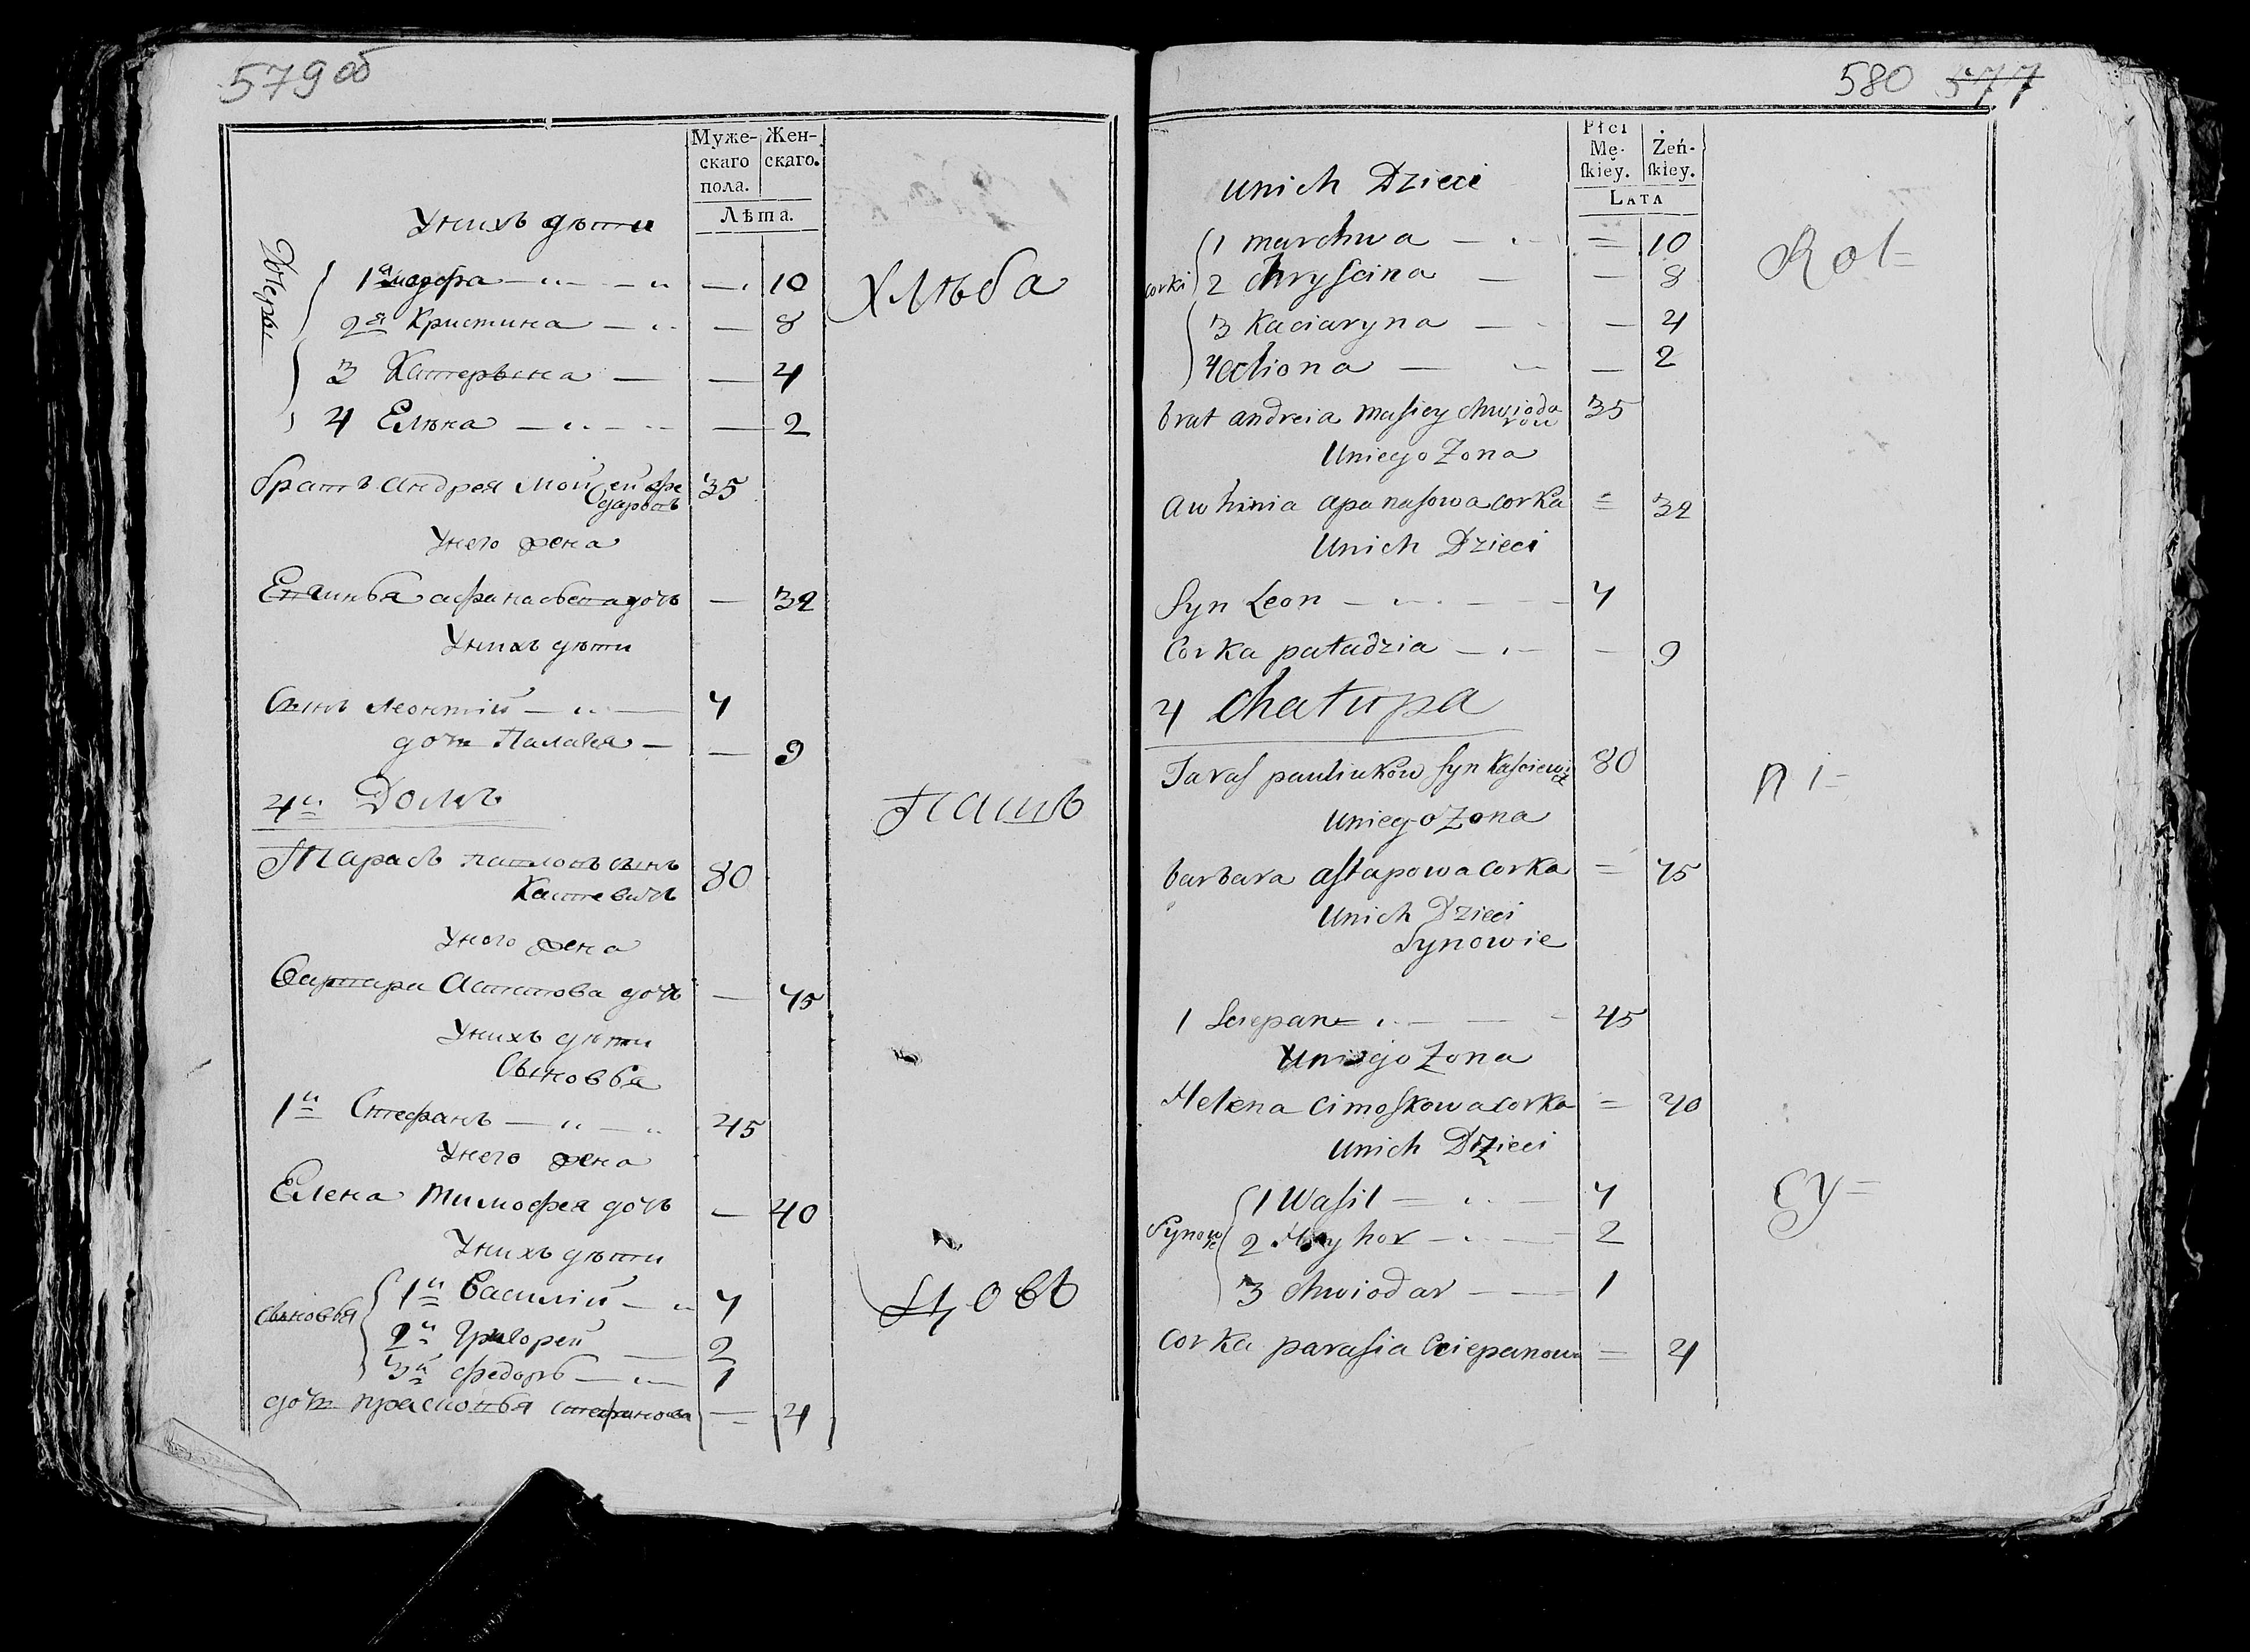 579 об
Муже-
скаго
пола.
Жен-
скаго.
Лѣта.
Унихъ дѣти
Дочери
1я 10
2я Кристина 8
3 Катерына 4
4 Елѣна 2
Хлѣба
братъ Андрея Мойсей Фе
одаровъ 35
Унего жена
афанасьева дочь 32
Унихъ дѣти
Сынъ Леонтий 7
дочь Палагея 9
4й Домъ
Пашъ
Тарасъ павловъ сынъ
Костевичъ 80
Унего жена
Варвара Астапова дочь 75
Унихъ дѣти
Сыновья
1й Стефанъ 45
Унего жена
Елена Тимофея дочь 40
Унихъ дѣти
Сыновья
1й Василій 7
2й Григорей 2
3й Федоръ 1
цовъ
дочь прасковья стефанова 4
580 577
Płci
Mę-
skiey.
Żeń-
skiey.
Lata
unich Dzieci
corki
1 marchwa 10
2 Chryscina 8
3 Kaciaryna 4
4 aliona 2
Rol=
brat andreia Masiey chwioda
row 35
Uniego Zona
Awhinia apanasowa corka = 32
Unich Dzieci
Syn Leon 7
Corka paładzia 9
4 Chatupa
Taras pauliukow syn Kasciewi
cz 80
ni=
Uniego Zona
barbara astapowa corka = 75
Unich Dzieci
Synowie
1 Sciepan 45
Uniego Zona
Helena Cimoskowa corka = 40
Unich Dzieci
Synow
ie
1 Wasil 7
2 Hryhor 2
3 Chwiodar 1
cy=
Corka parasia Sciepanowa = 4